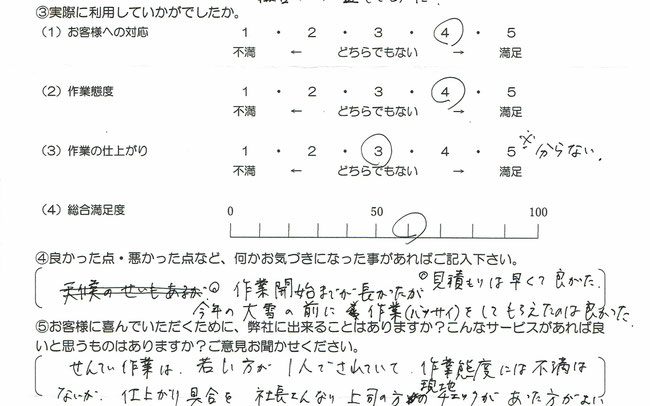 ③実際に利用していかがでしたか。
(1) お客様への対応 1 ・ 2 ・ 3 ・ 4 ・ 5
不満 ← どちらでもない → 満足
(2) 作業態度 1 ・ 2 ・ 3 ・ 4 ・ 5
不満 ← どちらでもない → 満足
(3) 作業の仕上がり 1 ・ 2 ・ 3 ・ 4 ・ 5 ※分らない.
不満 ← どちらでもない → 満足
(4) 総合満足度 0 50 100
④良かった点・悪かった点など、何かお気づきになった事があればご記入下さい。
天候のせいもあるか 作業開始までが長かったが ◎見積もりは早くて良かった.
今年の大雪の前に 作業(バッサイ)をしてもらえたのは良かった.
⑤お客様に喜んでいただくために、弊社に出来ることはありますか?こんなサービスがあれば良
いと思うものはありますか?ご意見お聞かせください。
せんてい作業は、若い方が1人でされていて、作業態度には不満は
ないが、仕上がり具合を 社長さんなり上司の方の 現地チェックがあった方がよい